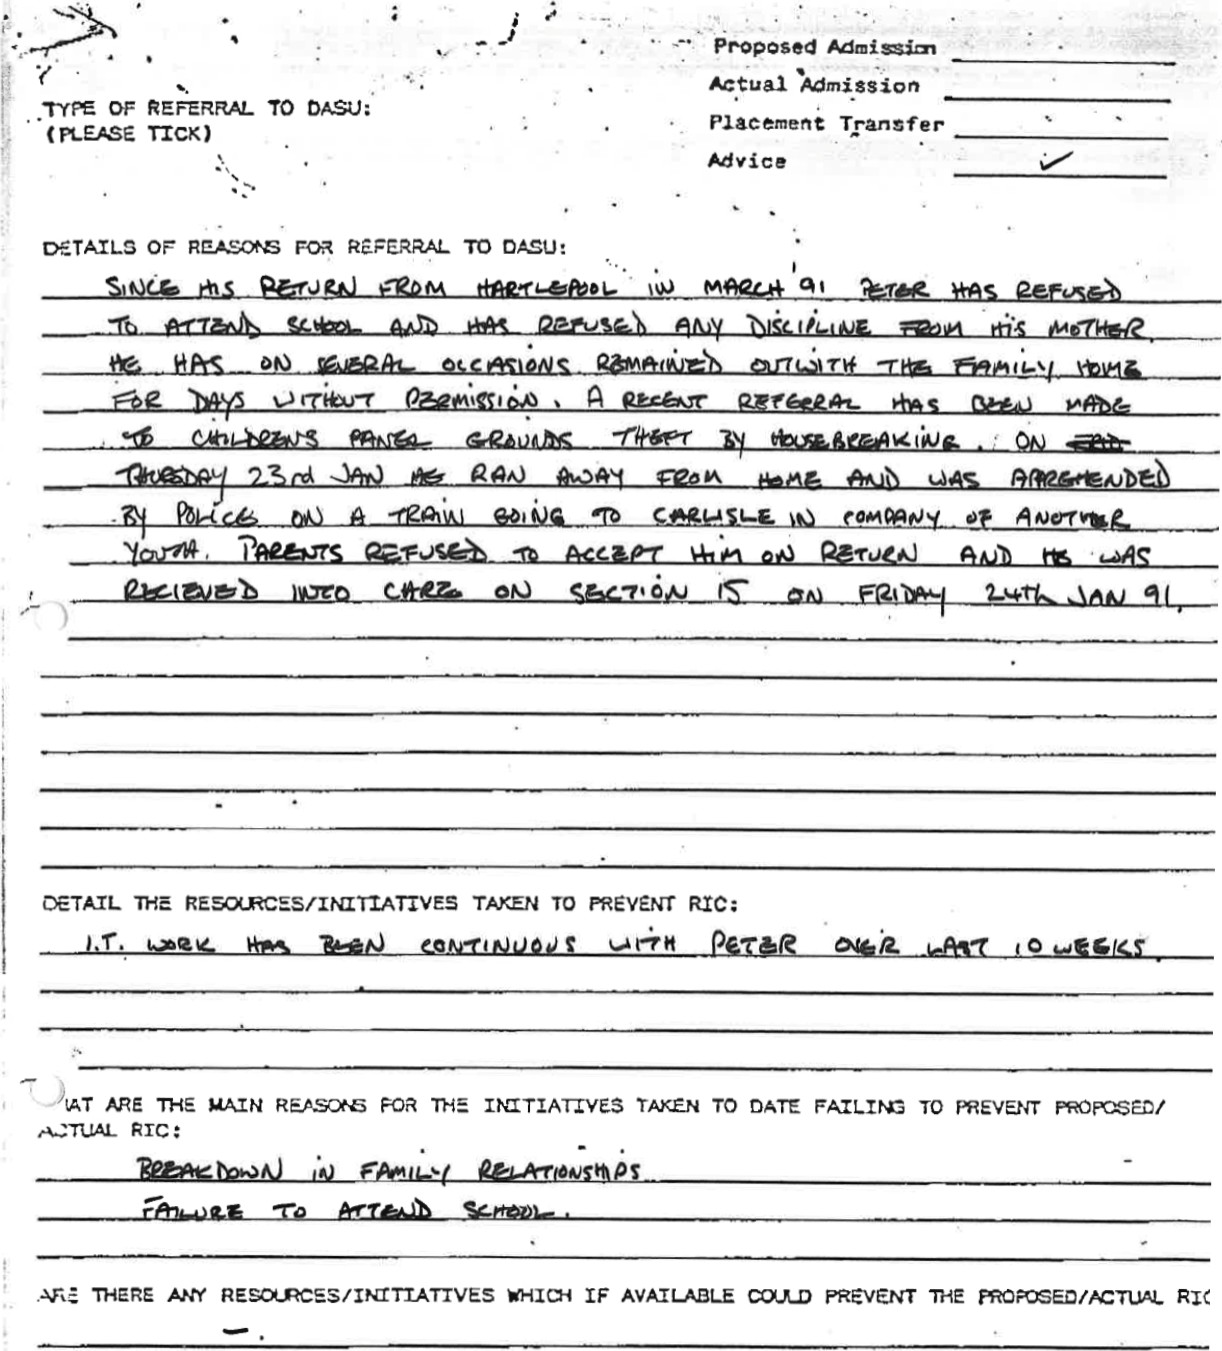 Proposed Admission
Actual Admission
TYPE OF REFERRAL TO DASU:
(PLEASE TICK)
Placement Transfer
Advice ✓
DETAILS OF REASONS FOR REFERRAL TO DASU:
SINCE HIS RETURN FROM HARTLEPOOL IN MARCH '91 PETER HAS REFUSED
TO ATTEND SCHOOL AND HAS REFUSED ANY DISCIPLINE FROM HIS MOTHER.
HE HAS ON SEVERAL OCCASIONS REMAINED OUTWITH THE FAMILY HOME
FOR DAYS WITHOUT PERMISSION. A RECENT REFERRAL HAS BEEN MADE
TO CHILDREN'S PANEL GROUNDS THEFT BY HOUSEBREAKING. ON
THURSDAY 23rd JAN HE RAN AWAY FROM HOME AND WAS APPREHENDED
BY POLICE ON A TRAIN GOING TO CARLISLE IN COMPANY OF ANOTHER
YOUTH. PARENTS REFUSED TO ACCEPT HIM ON RETURN AND HE WAS
RECIEVED INTO CARE ON SECTION 15 ON FRIDAY 24th JAN 91.
DETAIL THE RESOURCES/INITIATIVES TAKEN TO PREVENT RIC:
I.T. WORK HAS BEEN CONTINUOUS WITH PETER OVER LAST 10 WEEKS.
AT ARE THE MAIN REASONS FOR THE INITIATIVES TAKEN TO DATE FAILING TO PREVENT PROPOSED/
ACTUAL RIC:
BREAKDOWN IN FAMILY RELATIONSHIPS
FAILURE TO ATTEND SCHOOL.
ARE THERE ANY RESOURCES/INITIATIVES WHICH IF AVAILABLE COULD PREVENT THE PROPOSED/ACTUAL RIC
—.